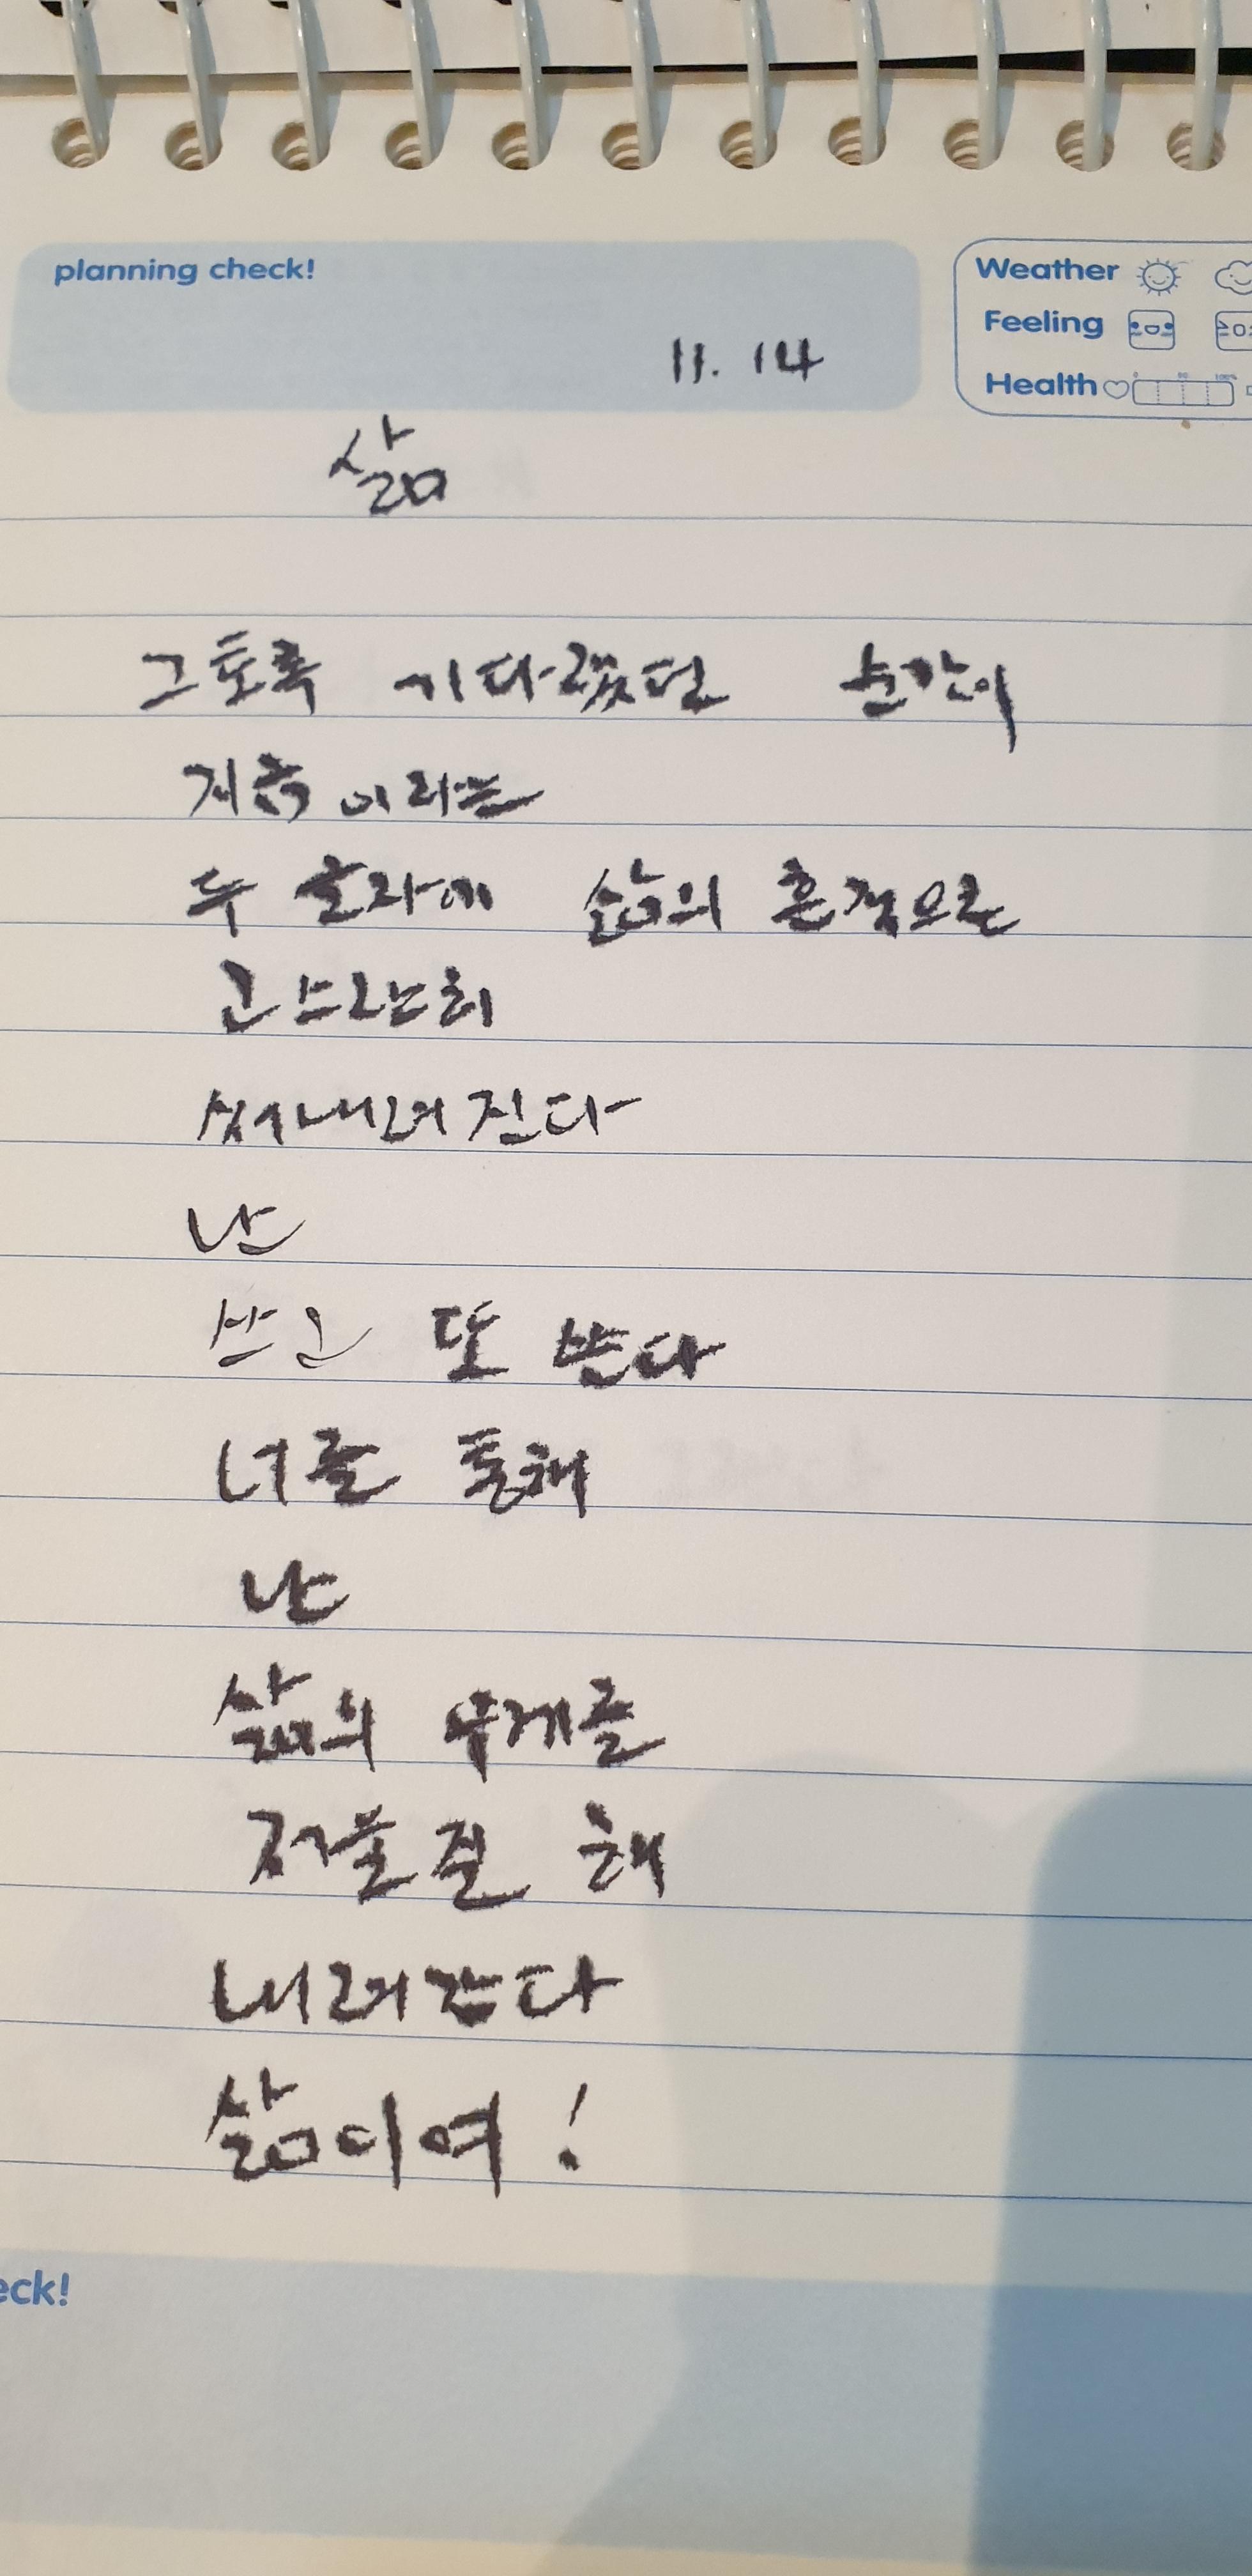 planning check!
Weather
Feeling
Health
11. 14
삶
그토록 기다렸던 순간이
지금 이라는
두 글자에 삶의 흔적으로
고스란히
써내려 진다
난
쓰고 또 쓴다
너를 통해
난
삶의 무게를
저울질 해
내려간다
삶이여!
eck!